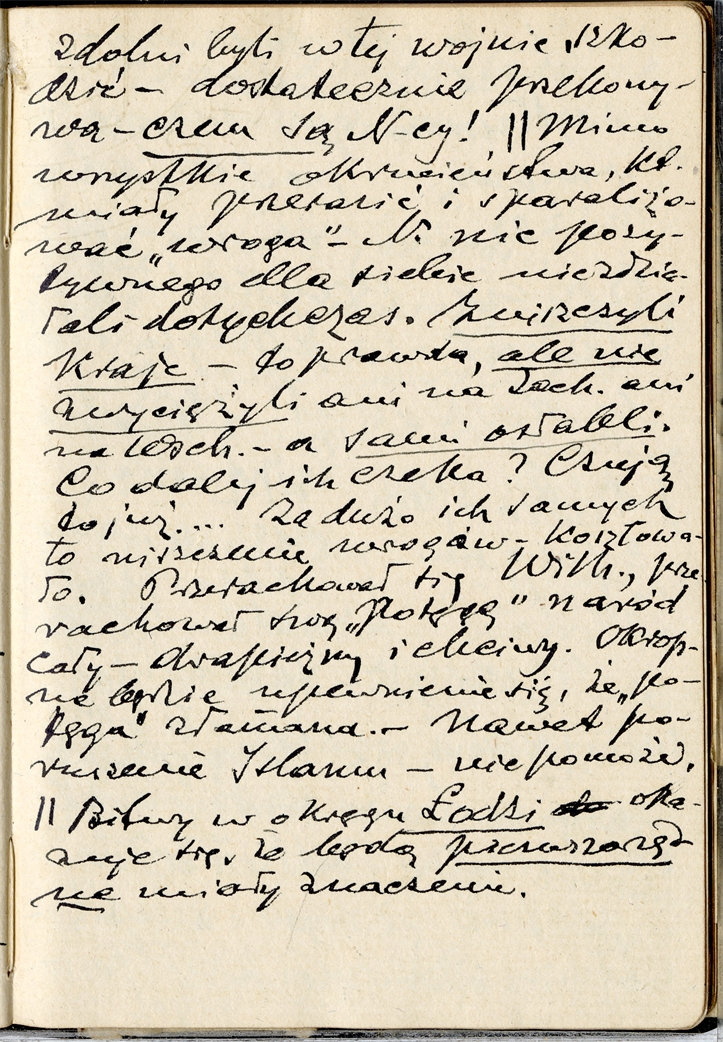 zdolni byli w tej wojnie szko-
dzić – dostatecznie przekony-
wa – czem są N-cy! || Mimo
wszystkie okrucieństwa, kt.
miały przerazić i sparaliżo-
wać „wroga” – N. nic pozy-
tywnego dla siebie niezdzia-
łali dotychczas. Zniszczyli
kraje – to prawda, ale nie
zwyciężyli ani na Zach. ani
na Wsch. – a sami osłabli.
Co dalej ich czeka? Czują
to już.... Za dużo ich samych
to niszczenie wrogów – kosztowa-
ło. Przerachował się Wilh., prze-
rachował swą „potęgę” naród
cały – drapieżny i chciwy. Okrop-
ne będzie upewnienie się, że „po-
tęga” złamana. – Nawet po-
ruszenie Islamu – nie pomoże.
|| Bitwy w okręgu Łodzi oka-
zuje się, że będą pierwszorzęd-
ne miały znaczenie.